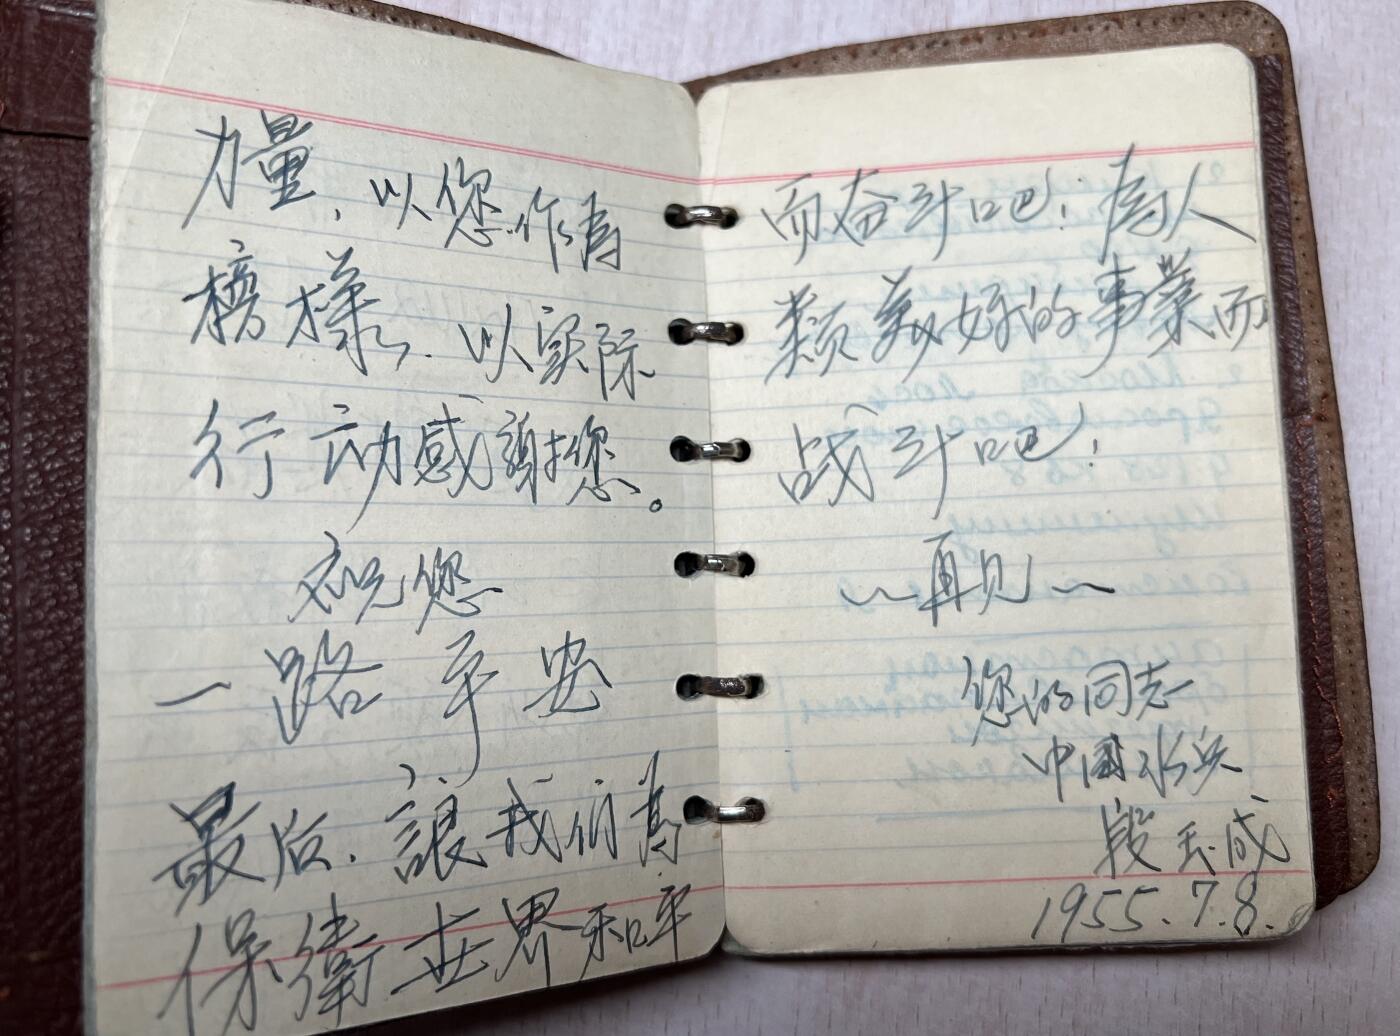 力量，以您作為
榜樣，以实际
行动感謝您。
祝您
一路平安
最后，讓我们為
保衛世界和平
而奋斗吧！為人
類美好的事業而
战斗吧！
～再见～
您的同志
中國水兵
段玉成
1955.7.8.